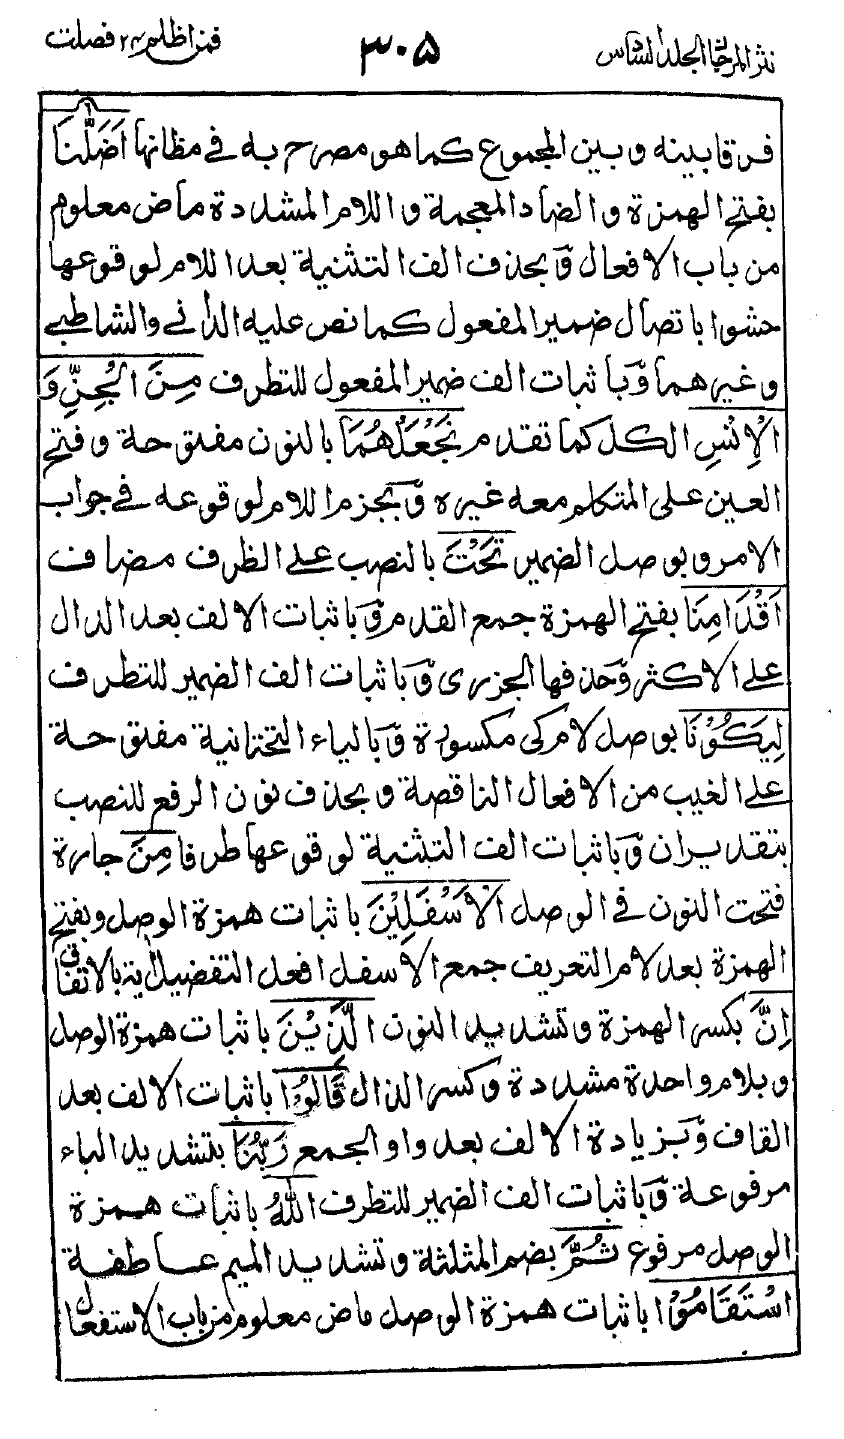 نثر المرجان المجلد السادس
٣٠٥
فمن اظلم ٢٤ فصلت
فرقا بينه وبين المجموع كما هو مصرح به فى مظانها اَضَلّٰنَا
بفتح الهمزة والضاد المعجمة واللام المشددة ماض معلوم
من باب الافعال وَبحذف الف التثنية بعد اللام لوقوعها
حشوا باتصال ضمير المفعول كما نص عليه الدانى والشاطبى
وغيرهما وَباثبات الف ضمير المفعول للتطرف مِنَ الْجِنِّ وَ
الْاِنْسِ الكل كما تقدم نَجْعَلْهُمَا بالنون مفتوحة وفتح
العين على المتكلم معه غيره وَبجزم اللام لوقوعه فى جواب
الامر وبوصل الضمير تَحْتَ بالنصب على الظرف مضاف
اَقْدَامِنَا بفتح الهمزة جمع القدم وَباثبات الالف بعد الدال
على الاكثر وَحذفها الجزرى وَباثبات الف الضمير للتطرف
لِيَكُوْنَا بوصل لام كى مكسورة وَبالياء التحتانية مفتوحة
على الغيب من الافعال الناقصة وبحذف نون الرفع للنصب
بتقدير ان وَباثبات الف التثنية لوقوعها طرفا مِنَ جارة
فتحت النون فى الوصل الْاَسْفَلِيْنَ باثبات همزة الوصل وبفتح
الهمزة بعد لام التعريف جمع الاسفل افعل التفضيل اٰية بالاتفاق
اِنَّ بكسر الهمزة وتشديد النون الَّذِيْنَ باثبات همزة الوصل
وبلام واحدة مشددة وكسر الذال قَالُوْا باثبات الالف بعد
القاف وَبزيادة الالف بعد واو الجمع رَبُّنَا بتشديد الباء
مرفوعة وَباثبات الف الضمير للتطرف اللّٰهُ باثبات همزة
الوصل مرفوع ثُمَّ بضم المثلثة وتشديد الميم عاطفة
اسْتَقَامُوْا باثبات همزة الوصل ماض معلوم من باب الاستفعال